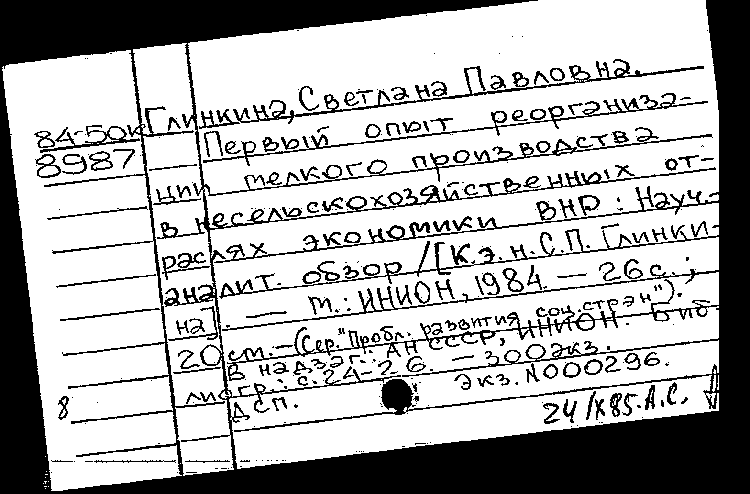 Глинкина, Светлана Павловна.
84-50к
8987
Первый опыт реорганиза-
ции мелкого производства
в несельскохозяйственных от-
раслях экономики ВНР : Науч.-
аналит. обзор / [К.э.н. С.П. Глинки-
на]. — М.: ИНИОН, 1984. — 26 с. ;
20 см. — (Сер. "Пробл. развития соц. стран").
В надзаг.: АН СССР, ИНИОН. Биб-
лиогр.: с. 24-26. — 300 экз.
ДСП. Экз. N000296.
8
24/X85.А.С.